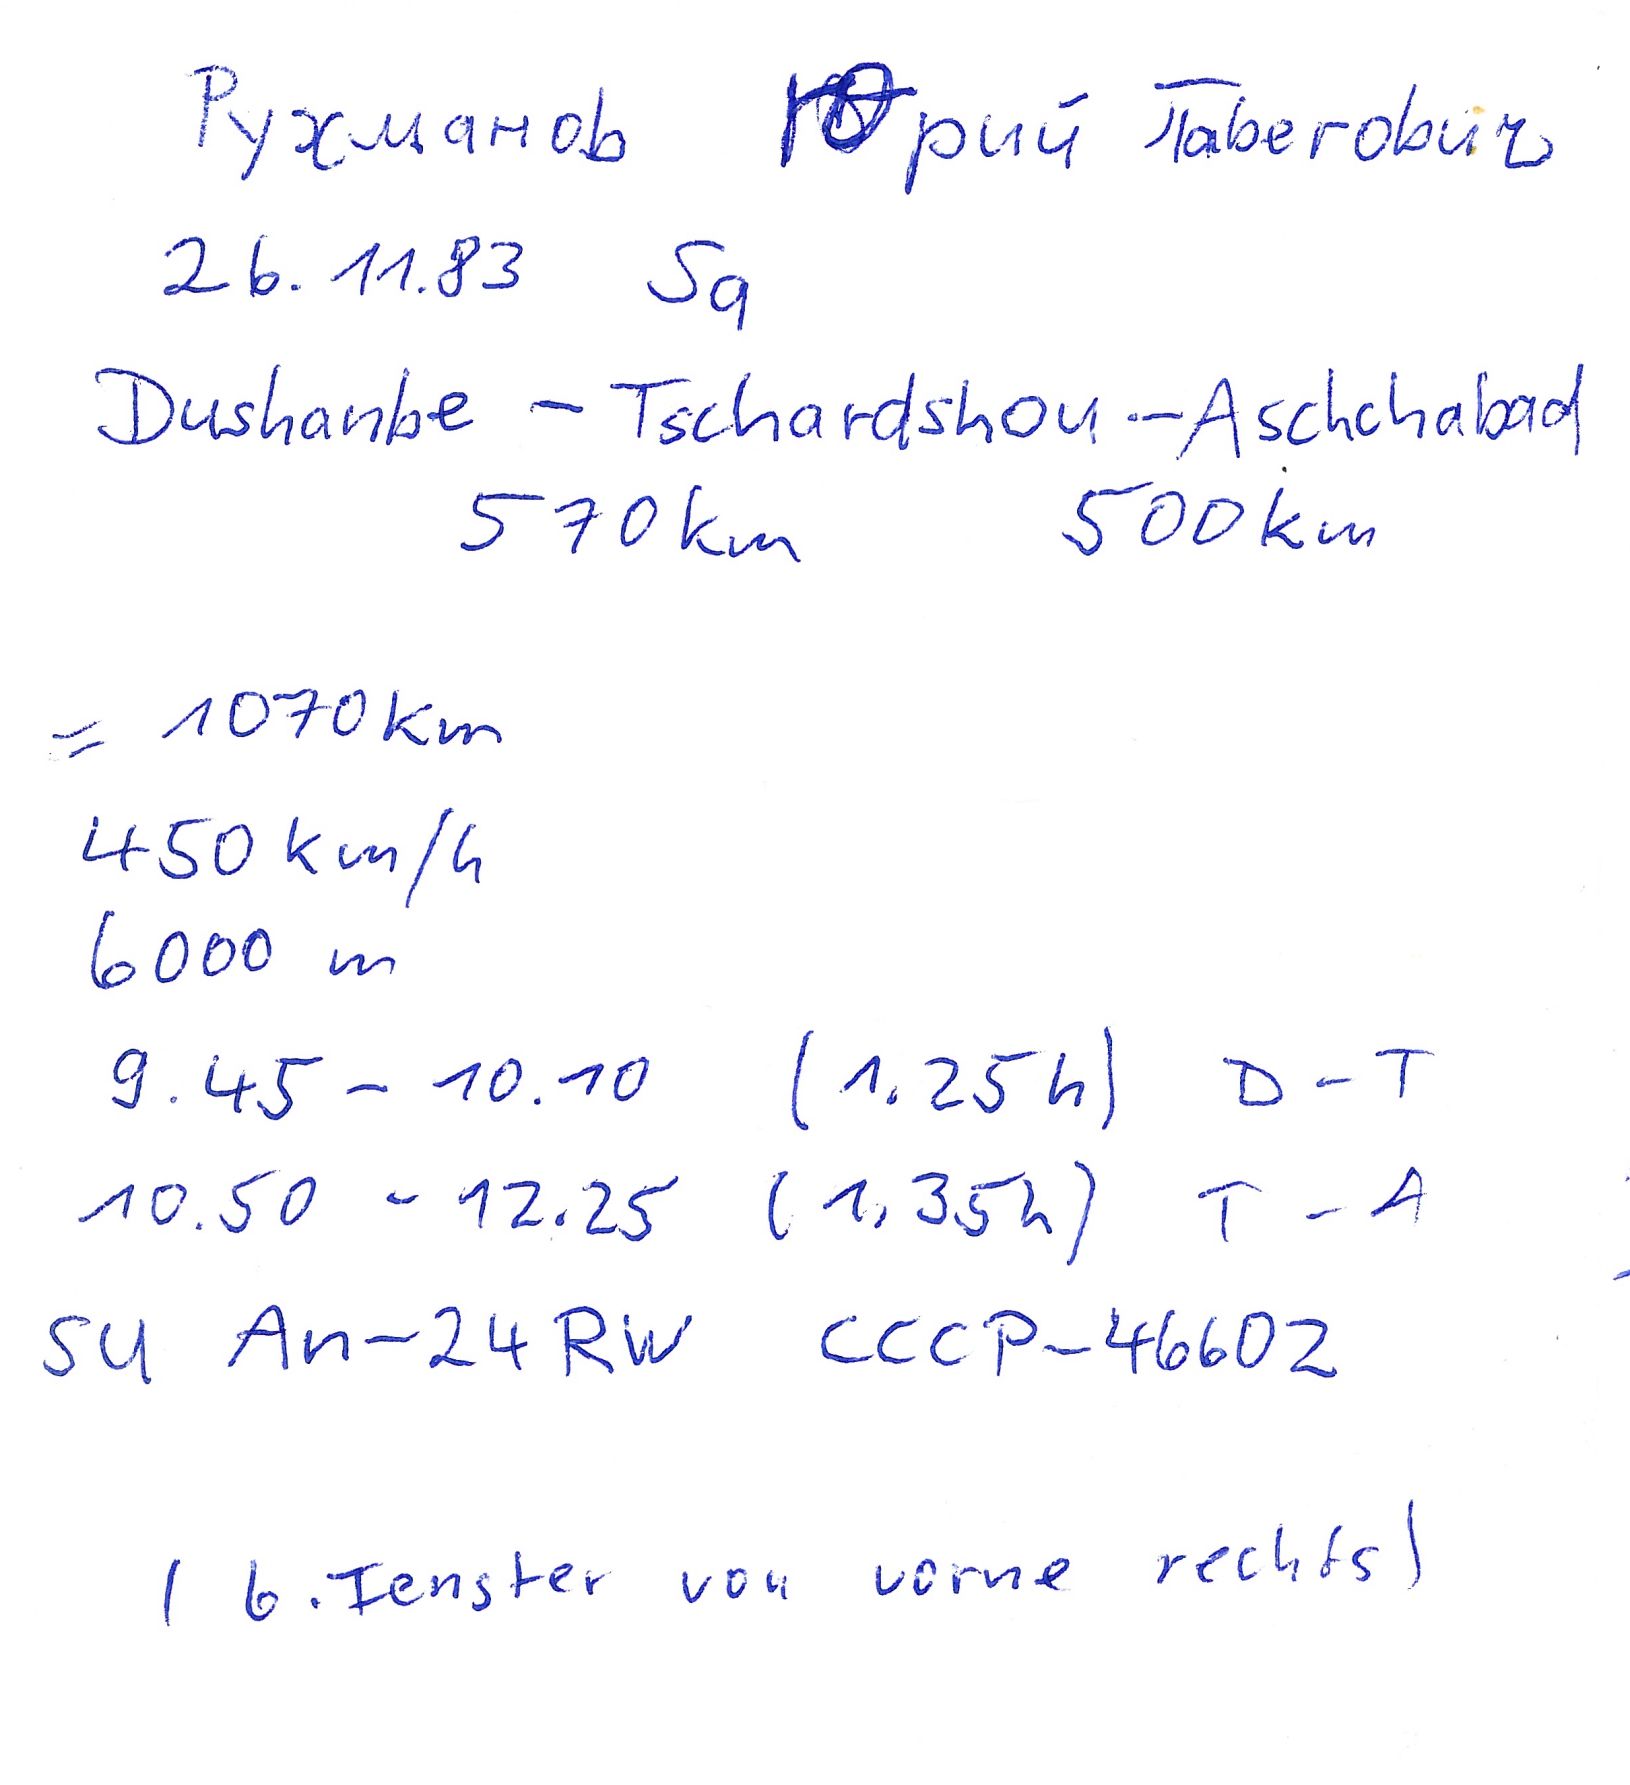 Рухманов Юрий Павегович
26.11.83 Sa
Dushanbe - Tschardshou - Aschchabad
570km 500km
= 1070km
450 km/h
6000 m
9.45 - 10.10 (1.25h) D-T
10.50 - 12.25 (1.35h) T-A
SU An-24RW CCCP-46602
(6. Fenster von vorne rechts)